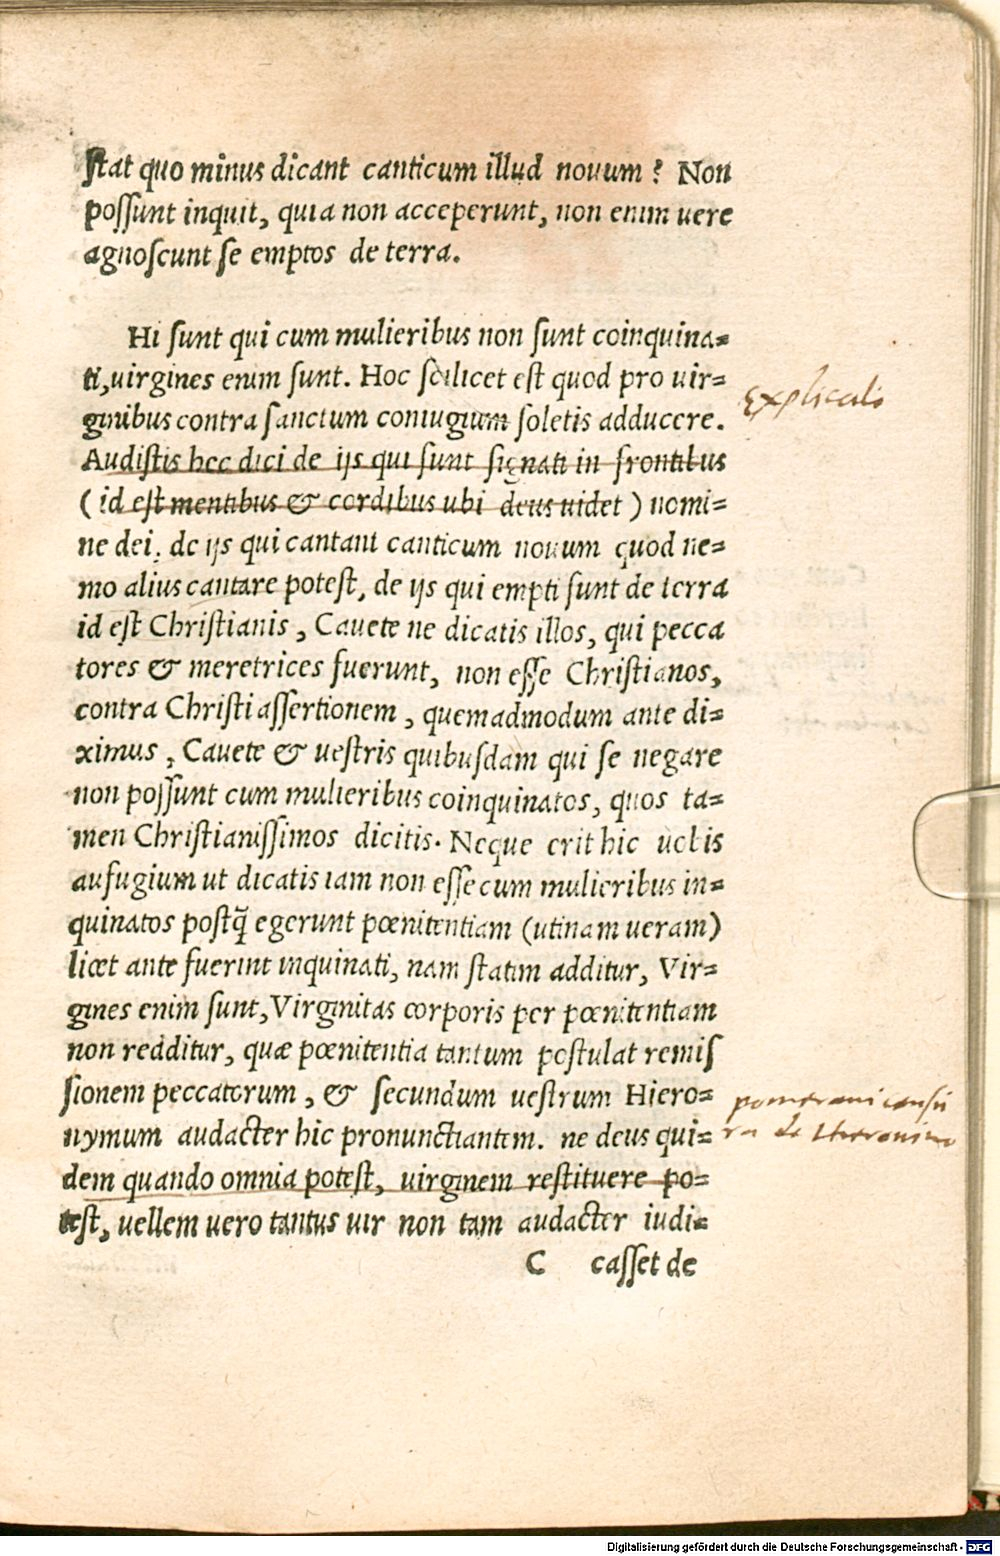 stat quo minus dicant canticum illud nouum? Non
possunt inquit, quia non acceperunt, non enim uere
agnoscunt se emptos de terra.
Hi sunt qui cum mulieribus non sunt coinquina=
ti, uirgines enim sunt. Hoc scilicet est quod pro uir=
ginibus contra sanctum coniugium soletis adducere.
Explicatio
Audistis hec dici de ijs qui sunt signati in frontibus
(id est mentibus & cordibus ubi deus uidet) nomi=
ne dei. de ijs qui cantant canticum nouum quod ne=
mo alius cantare potest, de ijs qui empti sunt de terra
id est Christianis, Cauete ne dicatis illos, qui pecca
tores & meretrices fuerunt, non esse Christianos,
contra Christi assertionem, quemadmodum ante di=
ximus, Cauete & uestris quibusdam qui se negare
non possunt cum mulieribus coinquinatos, quos ta=
men Christianissimos dicitis. Neque erit hic uobis
aufugium ut dicatis iam non esse cum mulieribus in=
quinatos postq̃ egerunt pœnitentiam (utinam ueram)
licet ante fuerint inquinati, nam statim additur, Vir=
gines enim sunt, Virginitas corporis per pœnitentiam
non redditur, quæ pœnitentia tantum postulat remis
sionem peccatorum, & secundum uestrum Hiero=
nymum audacter hic pronunctiantem. ne deus qui=
pomerani censu
ra de Hieronimo
dem quando omnia potest, uirginem restituere po=
test, uellem uero tantus uir non tam audacter iudi=
C casset de
Digitalisierung gefördert durch die Deutsche Forschungsgemeinschaft - DFG